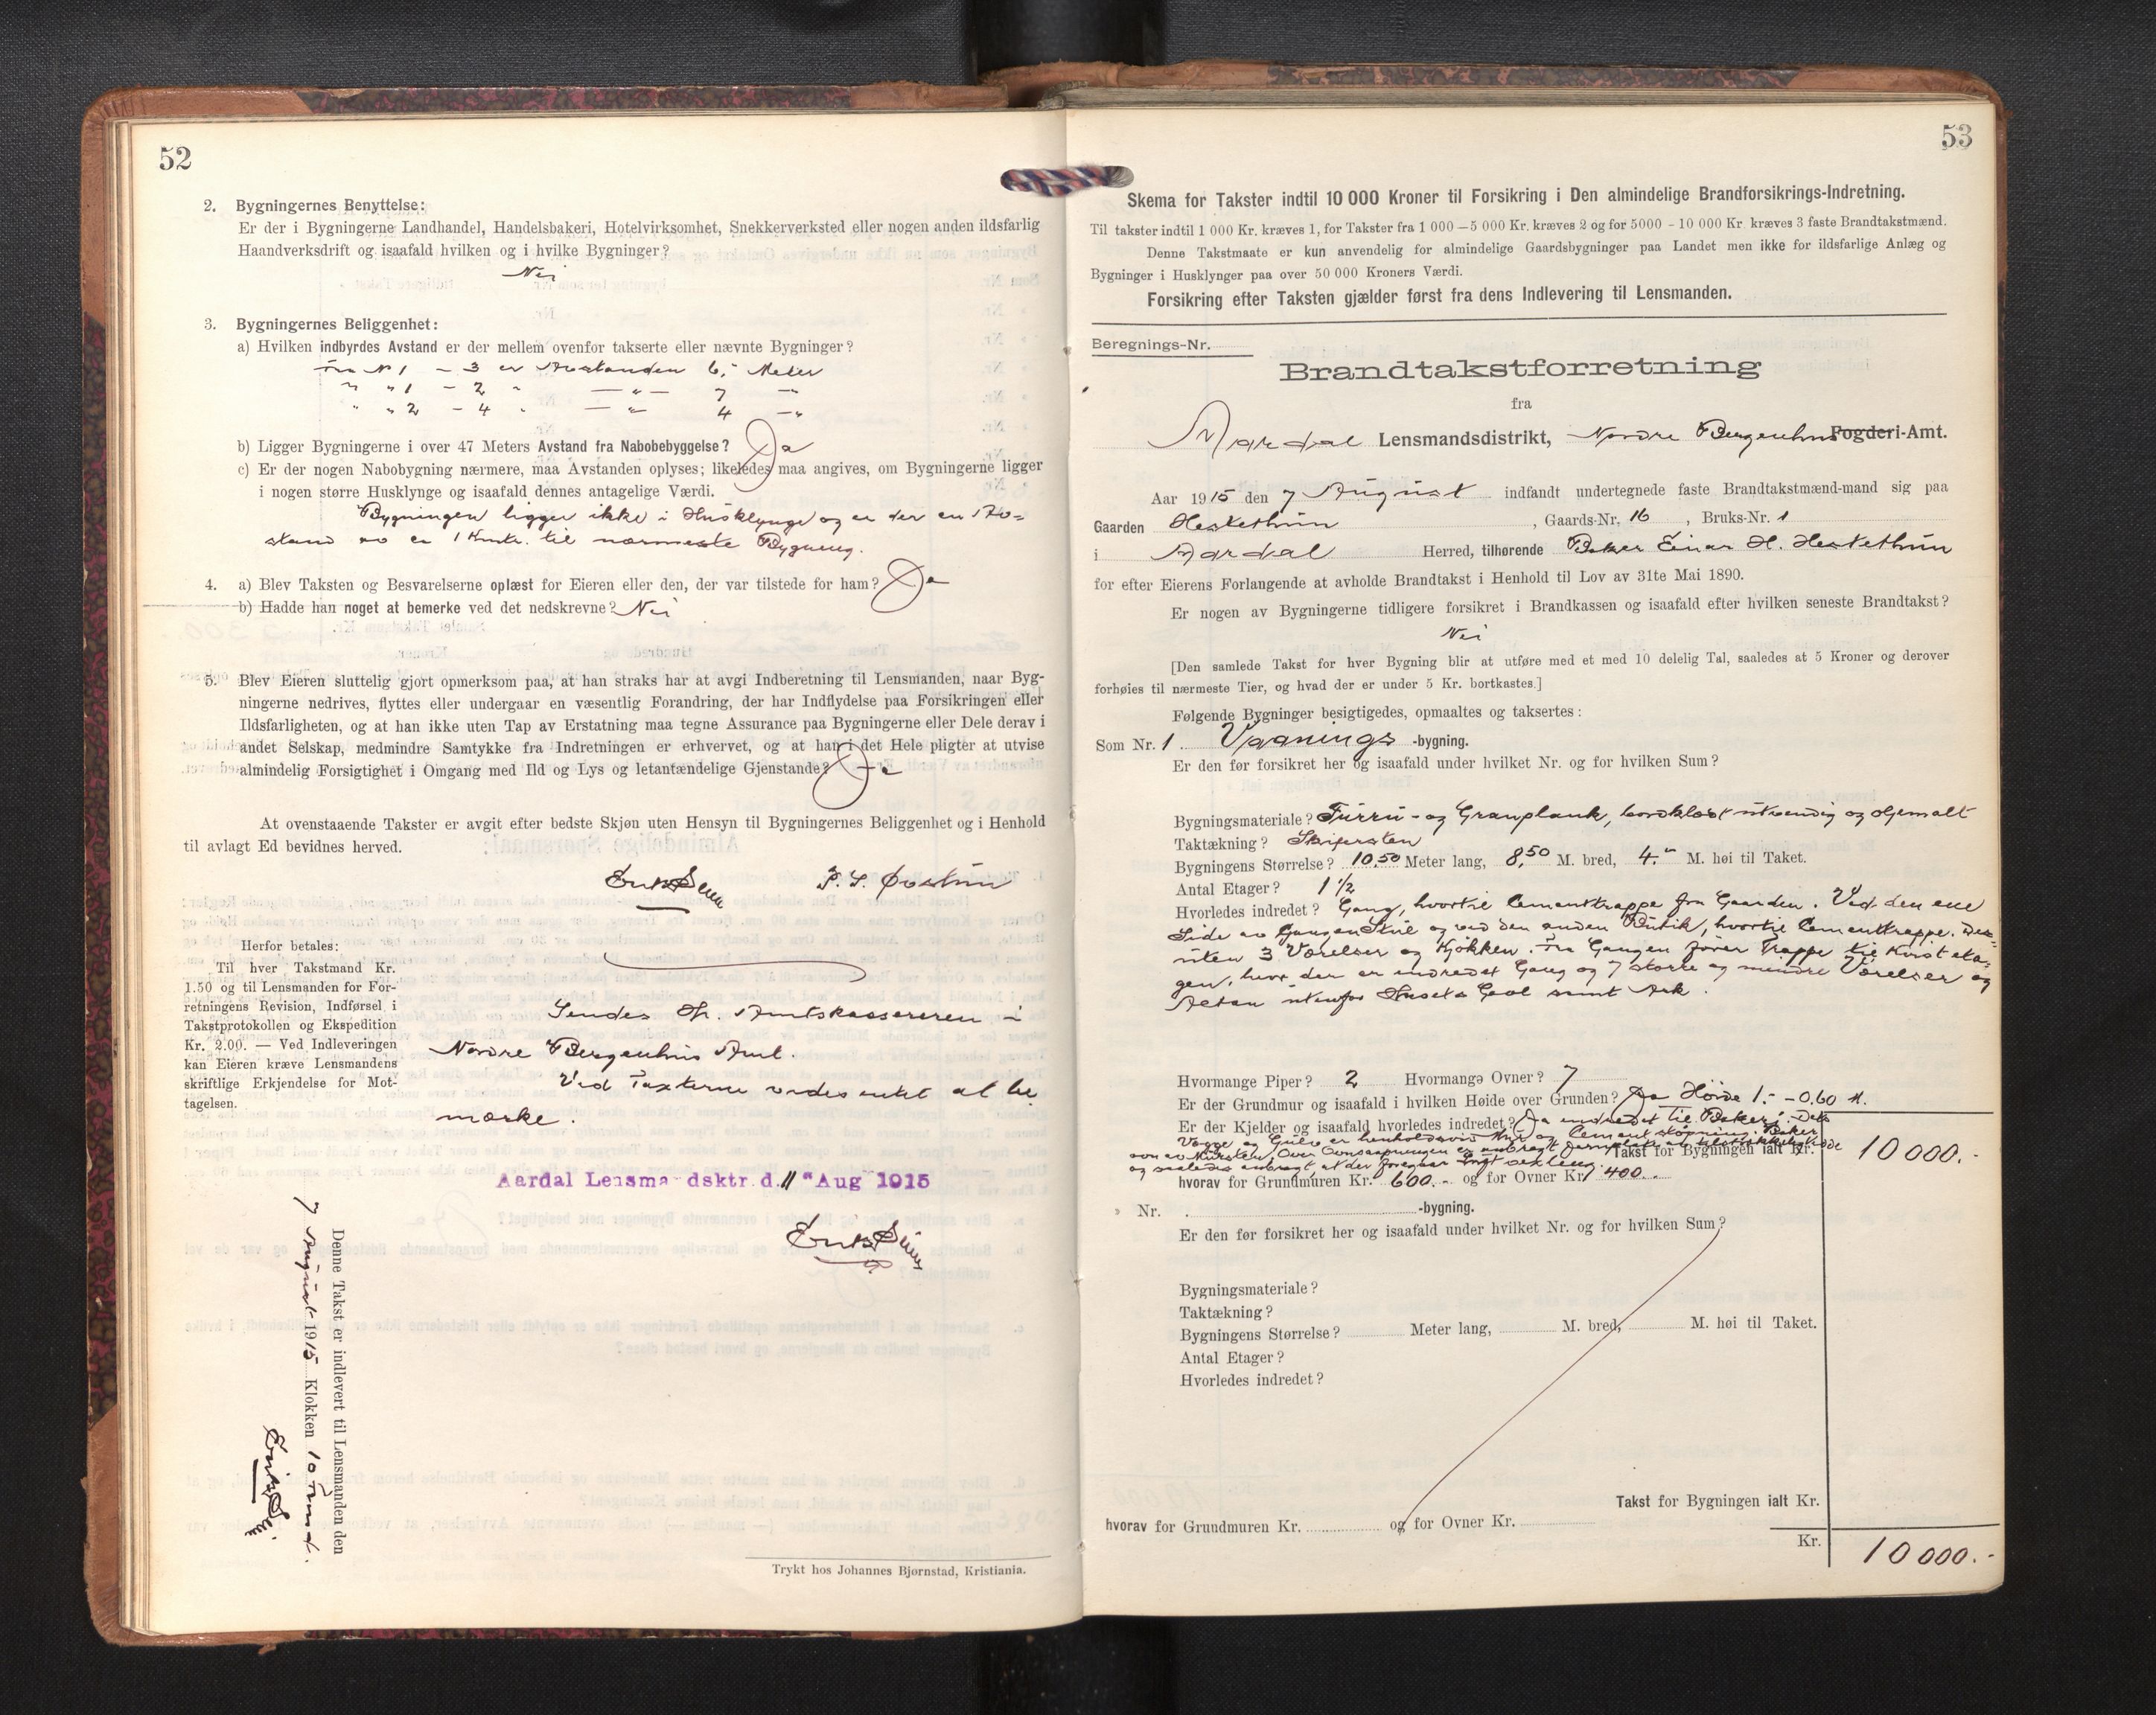 52
2. Bygningernes Benyttelse:
Er der i Bygningerne Landhandel, Handelsbakeri, Hotelvirksomhet, Snekkerverksted eller nogen anden ildsfarlig
Haandverksdrift og isaafald hvilken og i hvilke Bygninger?
Nei
3. Bygningernes Beliggenhet:
a) Hvilken indbyrdes Avstand er der mellem ovenfor takserte eller nævnte Bygninger?
Fra No 1 – 3 er Avstanden 6,- Meter
" " 1 – 2 " — " — 7 —"
" " 2 – 4 " — " — 4 —"
b) Ligger Bygningerne i over 47 Meters Avstand fra Nabobebyggelse? Ja
c) Er der nogen Nabobygning nærmere, maa Avstanden oplyses; likeledes maa angives, om Bygningerne ligger
i nogen større Husklynge og isaafald dennes antagelige Værdi.
Bygningen ligger ikke i Husklynge og er der en Av=
stand av ca 1 Kmtr. til nærmeste Bygning.
4. a) Blev Taksten og Besvarelserne oplæst for Eieren eller den, der var tilstede for ham? Ja
b) Hadde han noget at bemerke ved det nedskrevne? Nei
5. Blev Eieren sluttelig gjort opmerksom paa, at han straks har at avgi Indberetning til Lensmanden, naar Byg-
ningerne nedrives, flyttes eller undergaar en væsentlig Forandring, der har Indflydelse paa Forsikringen eller
Ildsfarligheten, og at han ikke uten Tap av Erstatning maa tegne Assurance paa Bygningerne eller Dele derav i
andet Selskap, medmindre Samtykke fra Indretningen er erhvervet, og at han i det Hele pligter at utvise
almindelig Forsigtighet i Omgang med Ild og Lys og letantændelige Gjenstande? Ja
At ovenstaaende Takster er avgit efter bedste Skjøn uten Hensyn til Bygningernes Beliggenhet og i Henhold
til avlagt Ed bevidnes herved.
P. S. Øvstun
Herfor betales:
Til hver Takstmand Kr.
1.50 og til Lensmanden for For-
retningens Revision, Indførsel i
Takstprotokollen og Ekspedition
Kr. 2.00. — Ved Indleveringen
kan Eieren kræve Lensmandens
skriftlige Erkjendelse for Mot-
tagelsen.
Sendes Hr. Amtskassereren i
Nordre Bergenhus Amt.
Ved Taxterne vides intet at be
mærke.
Aardal Lensma dsktr. d. 11 " Aug 1915
Denne Takst er indlevert til Lensmanden den
7 August 1915 Klokken 10 Formd.
Trykt hos Johannes Bjørnstad, Kristiania.
53
Skema for Takster indtil 10 000 Kroner til Forsikring i Den almindelige Brandforsikrings-Indretning.
Til takster indtil 1 000 Kr. kræves 1, for Takster fra 1 000 – 5 000 Kr. kræves 2 og for 5000 - 10 000 Kr kræves 3 faste Brandtakstmænd.
Denne Takstmaate er kun anvendelig for almindelige Gaardsbygninger paa Landet men ikke for ildsfarlige Anlæg og
Bygninger i Husklynger paa over 50 000 Kroners Værdi.
Forsikring efter Taksten gjælder først fra dens Indlevering til Lensmanden.
Beregnings-Nr.
Brandtakstforretning
fra
Aardal Lensmandsdistrikt, Nordre Bergenhus Fogderi-Amt.
Aar 1915 den 7 August indfandt undertegnede faste Brandtakstmænd-mand sig paa
Gaarden Hestethun, Gaards-Nr. 16, Bruks-Nr. 1
i Aardal Herred, tilhørende Baker Einar H. Hestethun
for efter Eierens Forlangende at avholde Brandtakst i Henhold til Lov av 31te Mai 1890.
Er nogen av Bygningerne tidligere forsikret i Brandkassen og isaafald efter hvilken seneste Brandtakst?
Nei
[Den samlede Takst for hver Bygning blir at utføre med et med 10 delelig Tal, saaledes at 5 Kroner og derover
forhøies til nærmeste Tier, og hvad der er under 5 Kr. bortkastes.]
Følgende Bygninger besigtigedes, opmaaltes og taksertes:
Som Nr. 1 Vaanings -bygning.
Er den før forsikret her og isaafald under hvilket Nr. og for hvilken Sum?
Bygningsmateriale? Furru- og Granplank, bordklædt utvendig og oljemalt
Taktækning? Skifersten
Bygningens Størrelse? 10,50 Meter lang, 8,50 M. bred, 4.- M. høi til Taket.
Antal Etager? 1 1/2
Hvorledes indredet? Gang, hvortil Cementtrappe fra Gaarden. Ved den ene
Side av Gangen Stue og ved den anden Butik, hvortil Cementtrappe. Des=
uten 3 Værelser og Kjøkken. Fra Gangen fører Trappe til Kvist eta=
gen, hvor der er indredet Gang og 7 større og mindre Værelser og
Altan utenfor Husets Gavl samt Ark.
Hvormange Piper? 2 Hvormange Ovner? 7
Er der Grundmur og isaafald i hvilken Høide over Grunden? Ja Høide 1.- – 0,60 M.
Er der Kjelder og isaafald hvorledes indredet? Ja indredet til Bakeri. Dets
Vægge og Gulv er henholdsvis Mur og Cement støpning. Baker
ovn av Mursten, Over Ovnsaapningen er anbragt Jernplate
og saaledes anbragt, at der foregaar
Takst for Bygningen ialt Kr. 10 000.-
hvorav for Grundmuren Kr. 600.- og for Ovner Kr. 400.-
» Nr. -bygning.
Er den før forsikret her og isaafald under hvilket Nr. og for hvilken Sum?
Bygningsmateriale?
Taktækning?
Bygningens Størrelse? Meter lang, M. bred, M. høi til Taket.
Antal Etager?
Hvorledes indredet?
Takst for Bygningen ialt Kr.
hvorav for Grundmuren Kr. og for Ovner Kr.
Kr. 10 000.-